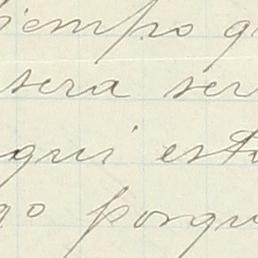 iempo q
sera ser
qui est
go porqu